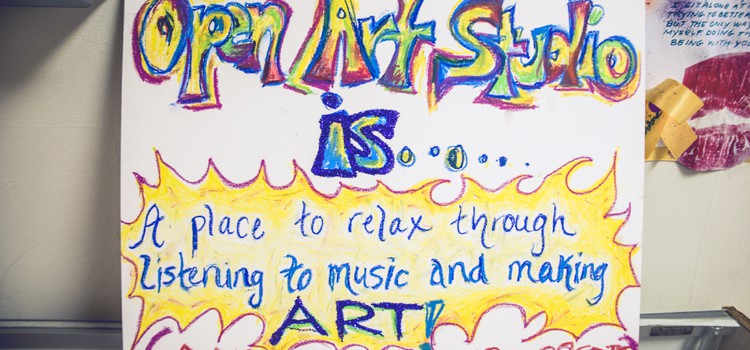 Open Art Studio
is.....
A place to relax through
listening to music and making
ART!
I SIT ALONE AT
TRYING TO BETTER
BUT THE ONLY WAY
MYSELF DOING TH
BEING WITH YOU